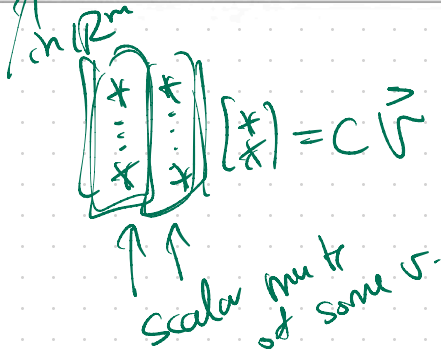 in ℝᵐ
[* *
⋮ ⋮
* *] [* *] = c v⃗
↑ ↑
scalar mult
of some v.